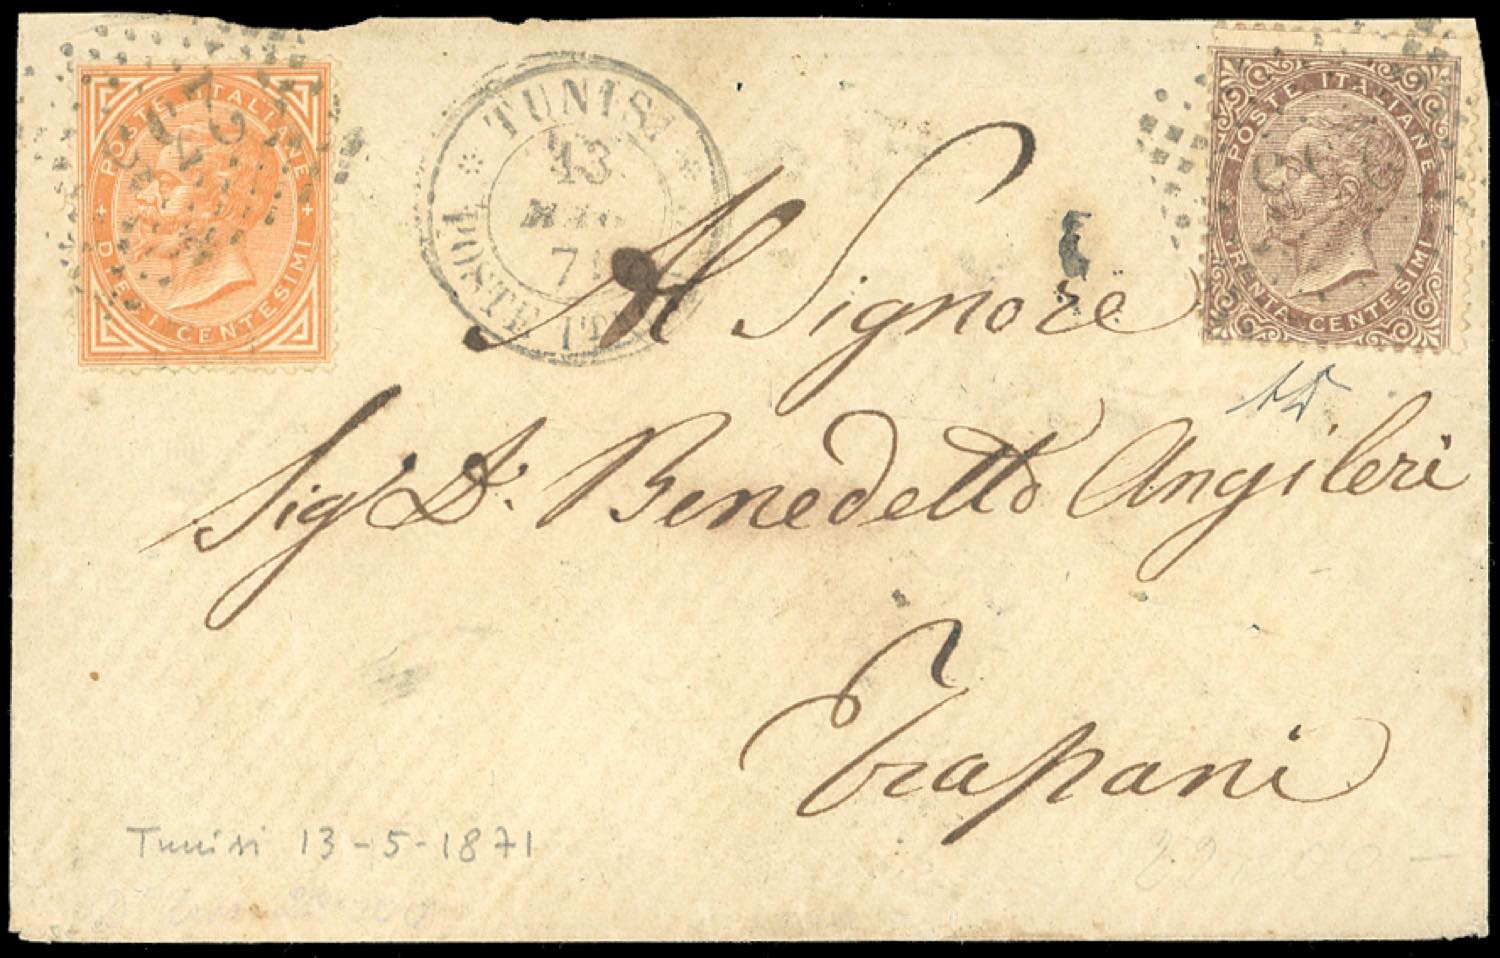 POSTE ITALIANE
DIECI CENTESIMI
235
TUNISI
13
MAG
71
POSTE ITAL
POSTE ITALIANE
TRENTA CENTESIMI
Al Signore
Sigr Dn. Benedetto Angileri
Trapani
Tunisi 13-5-1871